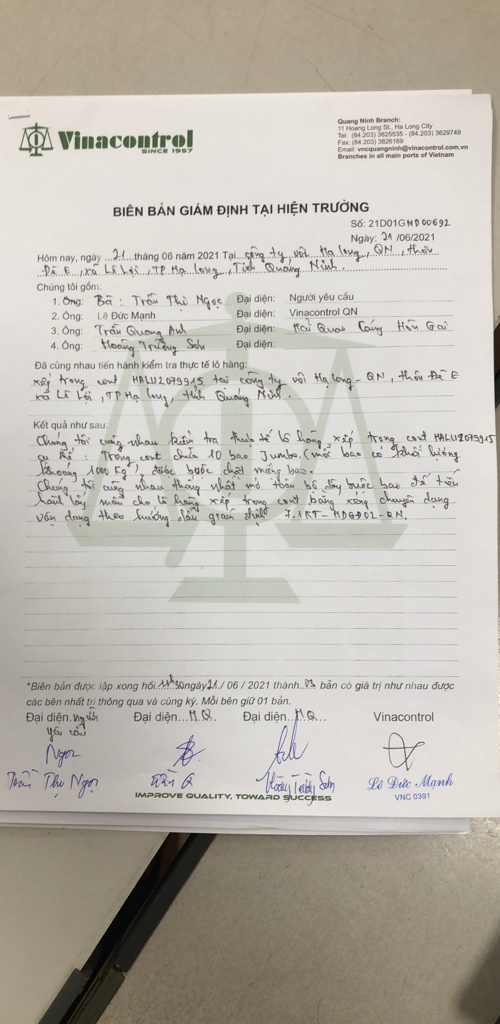 Vinacontrol
SINCE 1957
Quang Ninh Branch:
11 Hoang Long St., Ha Long City
Tel: (84.203) 3825535 - (84.203) 3829749
Fax: (84.203) 3826169
Email: vncquangninh@vinacontrol.com.vn
Branches in all main ports of Vietnam
BIÊN BẢN GIÁM ĐỊNH TẠI HIỆN TRƯỜNG
Số: 21D01GND00692
Ngày: 21 /06/2021
Hôm nay, ngày 21 tháng 06 năm 2021 Tại công ty vôi Hạ Long, QN, thôn
Đè E, xã Lê Lợi, TP Hạ Long, Tỉnh Quảng Ninh.
Chúng tôi gồm:
1. Ông: Bà: Trần Thị Ngọc Đại diện: Người yêu cầu
2. Ông: Lê Đức Mạnh Đại diện: Vinacontrol QN
3. Ông: Trần Quang Anh Đại diện: Hải Quan Cảng Hòn Gai
4. Ông: Hoàng Trường Sơn Đại diện:
Đã cùng nhau tiến hành kiểm tra thực tế lô hàng:
xếp trong cont HALU2079915 tại công ty vôi Hạ Long - QN, thôn Đè E
xã Lê Lợi, TP Hạ Long, tỉnh Quảng Ninh.
Kết quả như sau:
Chúng tôi cùng nhau kiểm tra thực tế lô hàng xếp trong cont HALU2079915
cụ thể: Trong cont chứa 10 bao Jumbo (mỗi bao có khối lượng
khoảng 1000 kg), được buộc chặt miệng bao.
Chúng tôi cùng nhau thống nhất mở toàn bộ dây buộc bao để tiến
hành lấy mẫu cho lô hàng xếp trong cont bằng xẻng chuyên dụng
vận dụng theo hướng dẫn giám định 7.1KT-HDGD02-QN.
*Biên bản được lập xong hồi 11h30 ngày 21 / 06 / 2021 thành 03 bản có giá trị như nhau được
các bên nhất trí thông qua và cùng ký. Mỗi bên giữ 01 bản.
Đại diện người Đại diện H.Q Đại diện H.Q Vinacontrol
yêu cầu
Ngọc
Trần Thị Ngọc Hoàng Trường Sơn Lê Đức Mạnh
VNC 0391
IMPROVE QUALITY, TOWARD SUCCESS